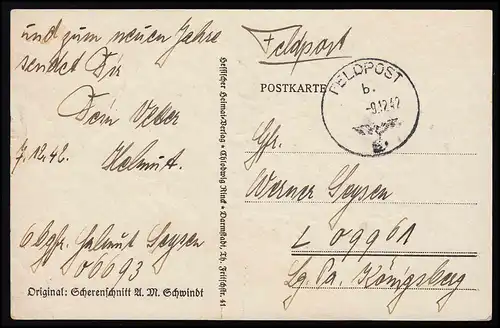 und zum neuen Jahre
sendet Dir
Dein Vetter
7.12.42. Helmut.
Obgfr. Helmut Seysen
06693
Original: Scherenschnitt A. M. Schwindt
Hessischer Heimat-Verlag • Chlodwig Rinck • Darmstadt, Th. Fritschstr. 41
Feldpost
POSTKARTE
FELDPOST
b.
-9.12.42
Gfr.
Werner Seysen
L 09961
Lg. Pa. Königsberg